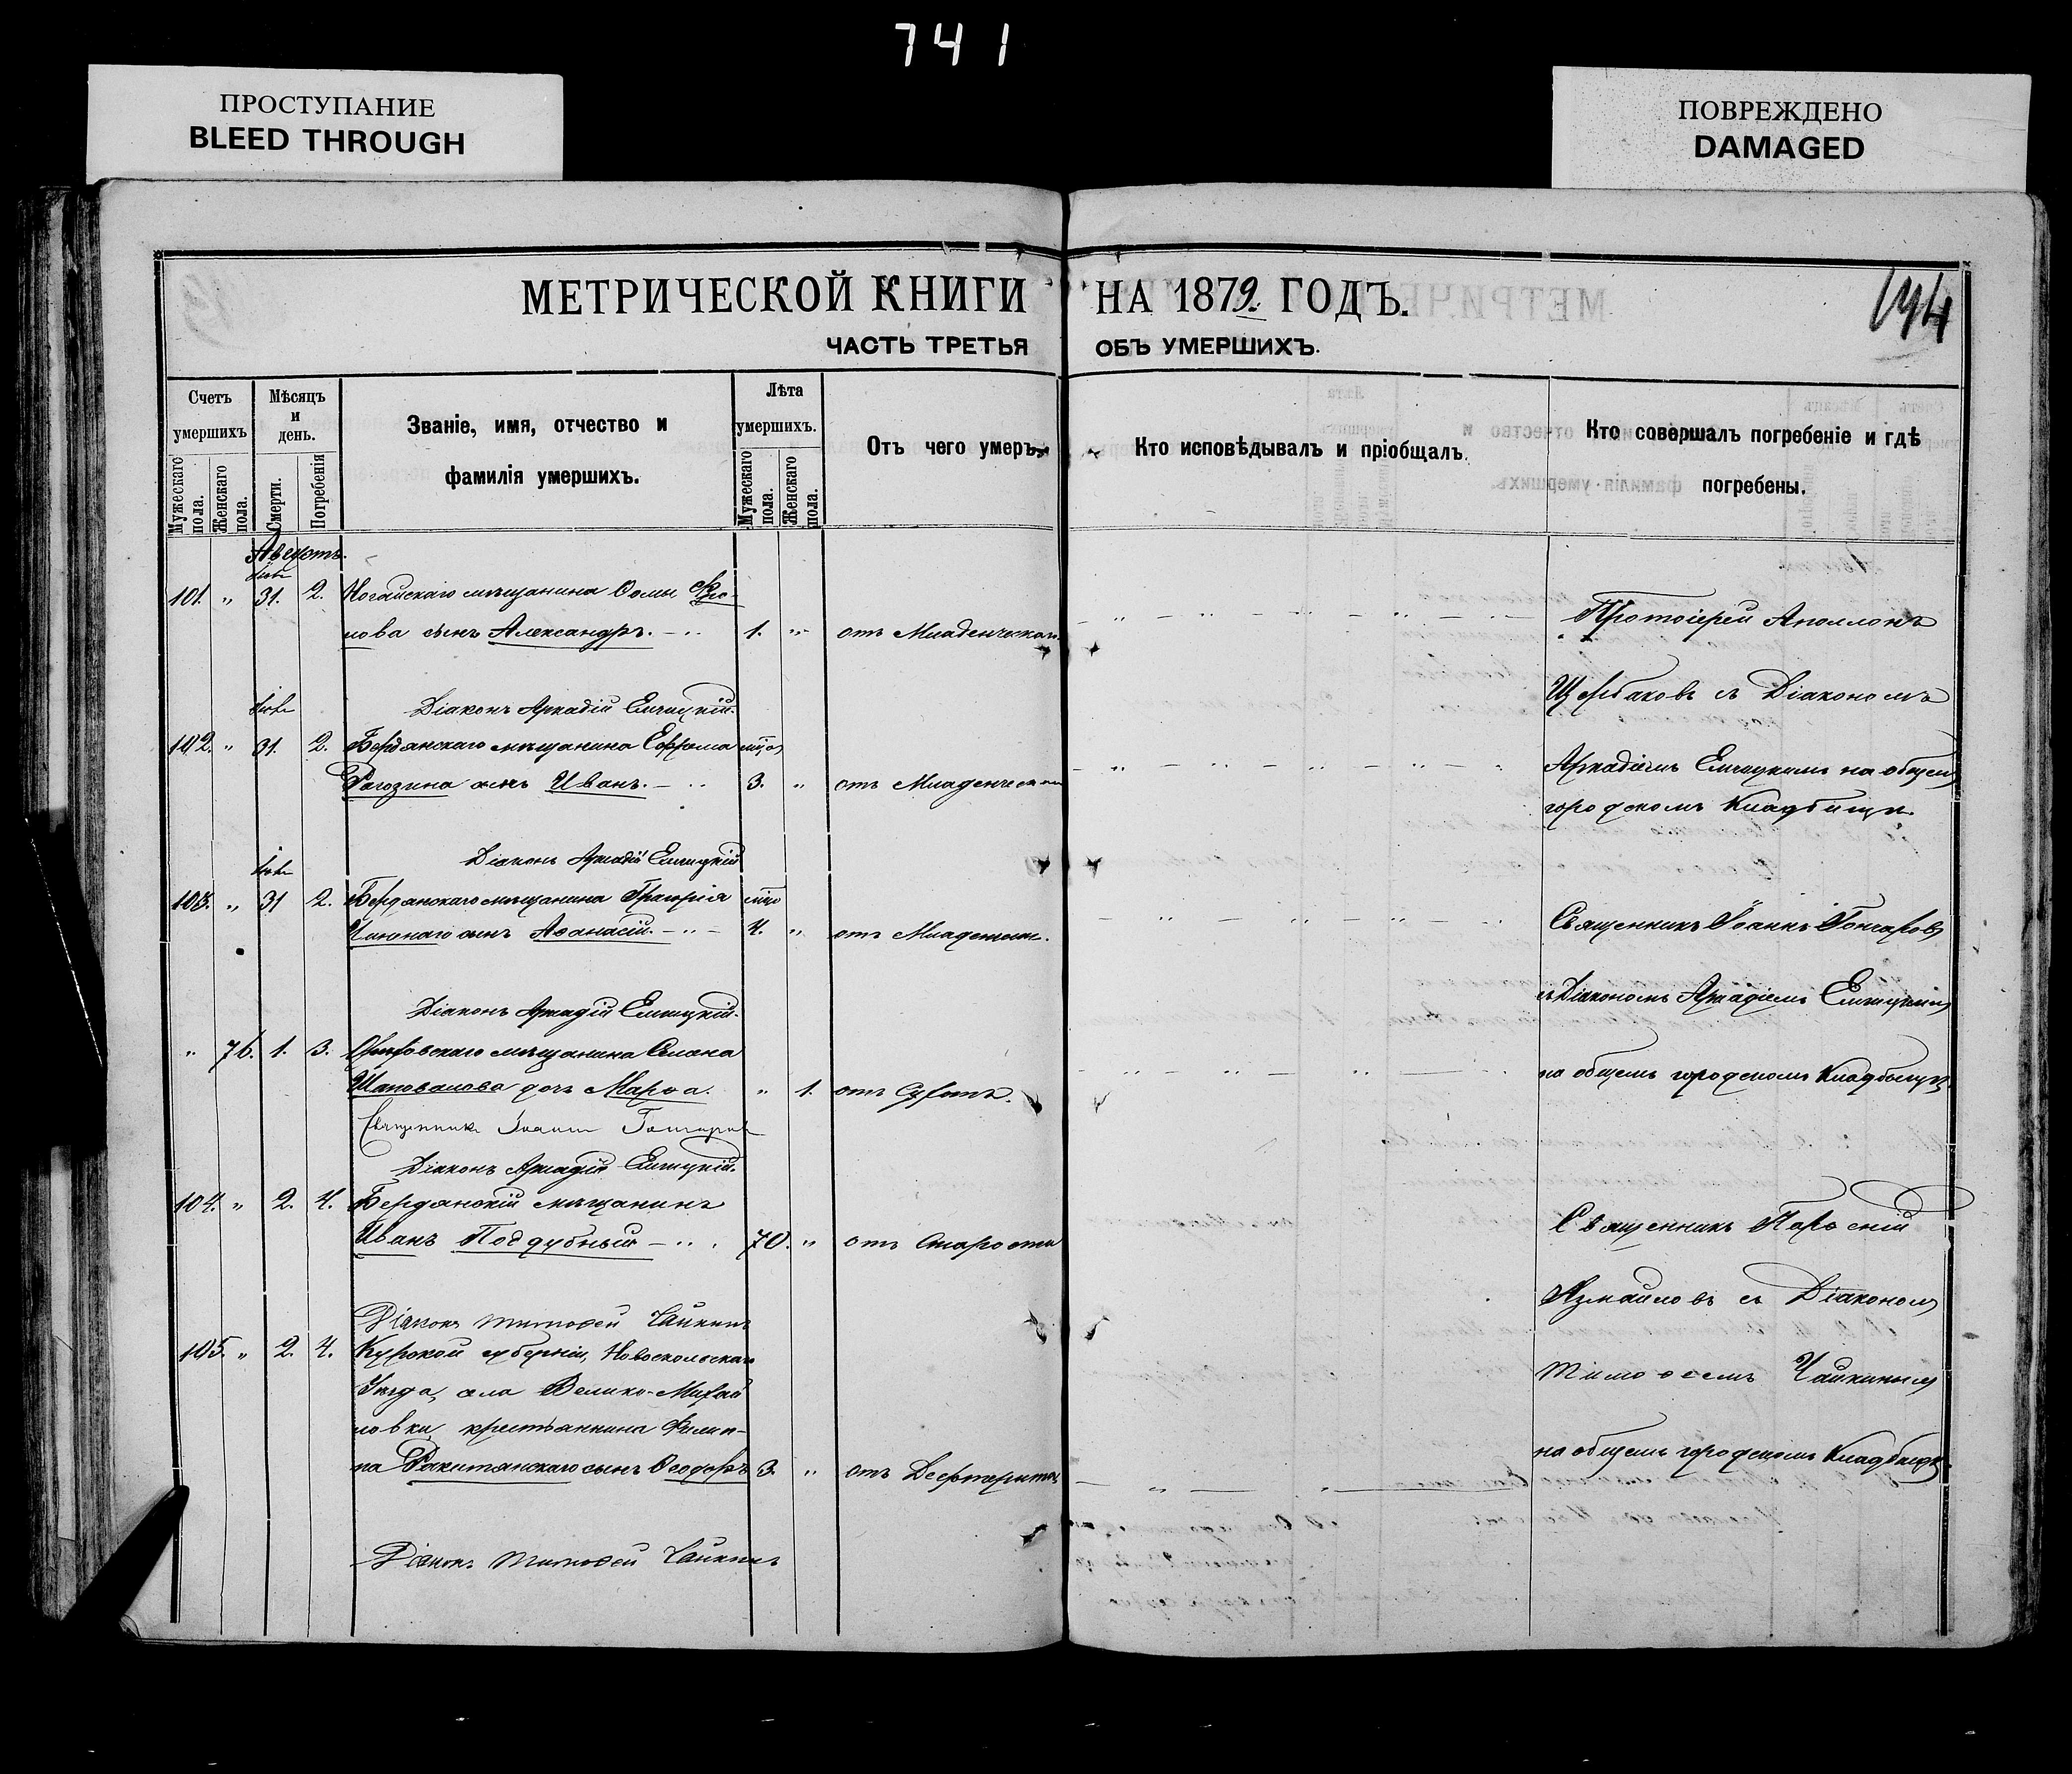 741
ПРОСТУПАНИЕ
BLEED THROUGH
ПОВРЕЖДЕНО
DAMAGED
МЕТРИЧЕСКОЙ КНИГИ НА 1879. ГОДЪ.
194
ЧАСТЬ ТРЕТЬЯ ОБЪ УМЕРШИХЪ.
Счетъ умершихъ
Мужескаго пола.
Женскаго пола.
Мѣсяцъ и день.
Смерти.
Погребенія
Званіе, имя, отчество и фамилія умершихъ.
Лѣта умершихъ.
Мужескаго пола.
Женскаго пола.
Отъ чего умеръ
Кто исповѣдывалъ и пріобщалъ.
Кто совершалъ погребеніе и гдѣ погребены.
Августъ.
101. " 31. 2. Ногайскаго мѣщанина Ѳомы
лова сынъ Александръ. 1. " отъ Младенческой
Протоіерей Аполлонъ
Щербаковъ съ Діакономъ
Діаконъ Аркадій Емницкій.
102. " 31. 2. Бердянскаго мѣщанина Ефрема мцов
Рагозина сынъ Иванъ. 3. " отъ Младенческой
Аркадіемъ Емницкимъ на общем
городскомъ Кладбищѣ.
Діаконъ Аркадій Емницкій
103. " 31 2. Бердянскаго мѣщанина мцо
сынъ Аѳанасій. 4. " отъ Младенческ.
Священникъ Іоаннъ Гончаровъ
съ Діакономъ Аркадіемъ Емницкимъ
Діаконъ Аркадій Емницкій.
" 76. 1. 3. Орѣховскаго мѣщанина
Шаповалова дочь Марѳа. " 1. отъ
на общемъ городскомъ Кладбищѣ.
Священникъ Іоаннъ Гончаровъ
Діаконъ Аркадій Емницкій.
104. " 2. 4. Бердянскій мѣщанинъ
Иванъ Поддубный 70. " отъ Старости
Священникъ
Измаиловъ съ Діакономъ
Діаконъ Тимоѳей Чайкинъ
105. " 2. 4. Курской губерніи, Новоскольскаго
Уѣзда, села Велико-Михай
ловки, крестьянина Филип-
па Ракитянскаго сынъ Ѳеодоръ 3. " отъ Дефтерита
Тимоѳеемъ Чайкинымъ
на общемъ городскомъ Кладбищѣ.
Діаконъ Тимоѳей Чайкинъ